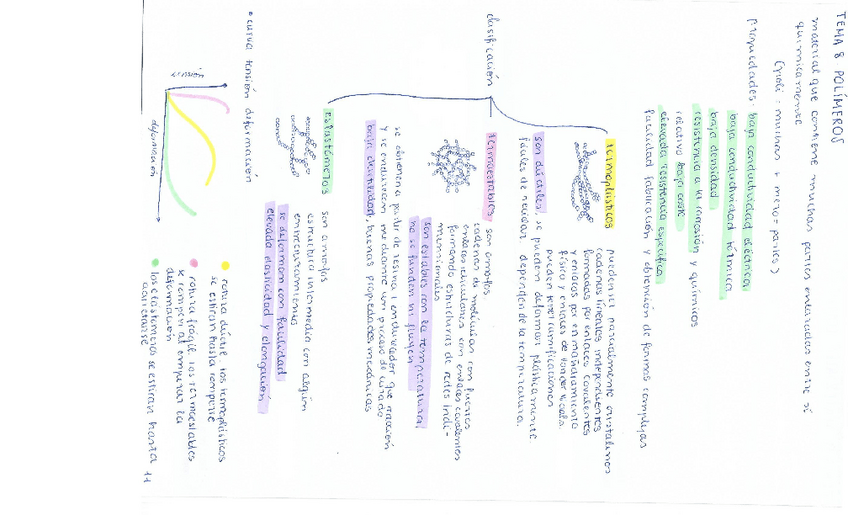 TEMA 8 POLÍMEROS
material que contiene muchas partes enlazadas entre sí
químicamente
(poli: muchas + mero = partes)
propiedades: baja conductividad eléctrica
baja conductividad térmica
baja densidad
resistencia a la corrosión y químicos
relativo bajo coste
elevada resistencia específica
facilidad fabricación y obtención de formas complejas
clasificación
termoplásticos
pueden ser parcialmente cristalinos
cadenas lineales independientes
formadas por enlaces covalentes
y enlaces por enmarañamiento
físico y enlaces de Van der Waals
pueden tener ramificaciones
son dúctiles, se pueden deformar plásticamente
fáciles de reciclar, dependen de la temperatura.
termoestables
son amorfos
cadenas de moléculas con fuertes
enlaces reticulares con enlaces covalentes
formando estructuras de redes tridi-
mensionales
son estables con la temperatura
no se funden ni fluyen
se obtienen a partir de resina + endurecedor que reaccionan
y se endurecen mediante un proceso de curado
baja ductilidad, buenas propiedades mecánicas
elastómeros
son amorfos
estructura intermedia con algún
entrecruzamiento
se deforman con facilidad
elevada elasticidad y elongación
• curva tensión deformación
tensión
deformación
rotura dúctil, los termoplásticos
se estiran hasta romperse
rotura frágil, los termoestables
se rompen al empezar la
deformación
los elastómeros se estiran hasta
11